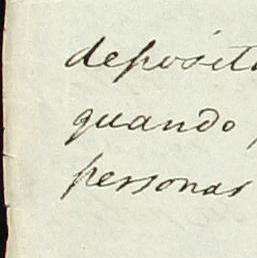 deposit
quando
personas